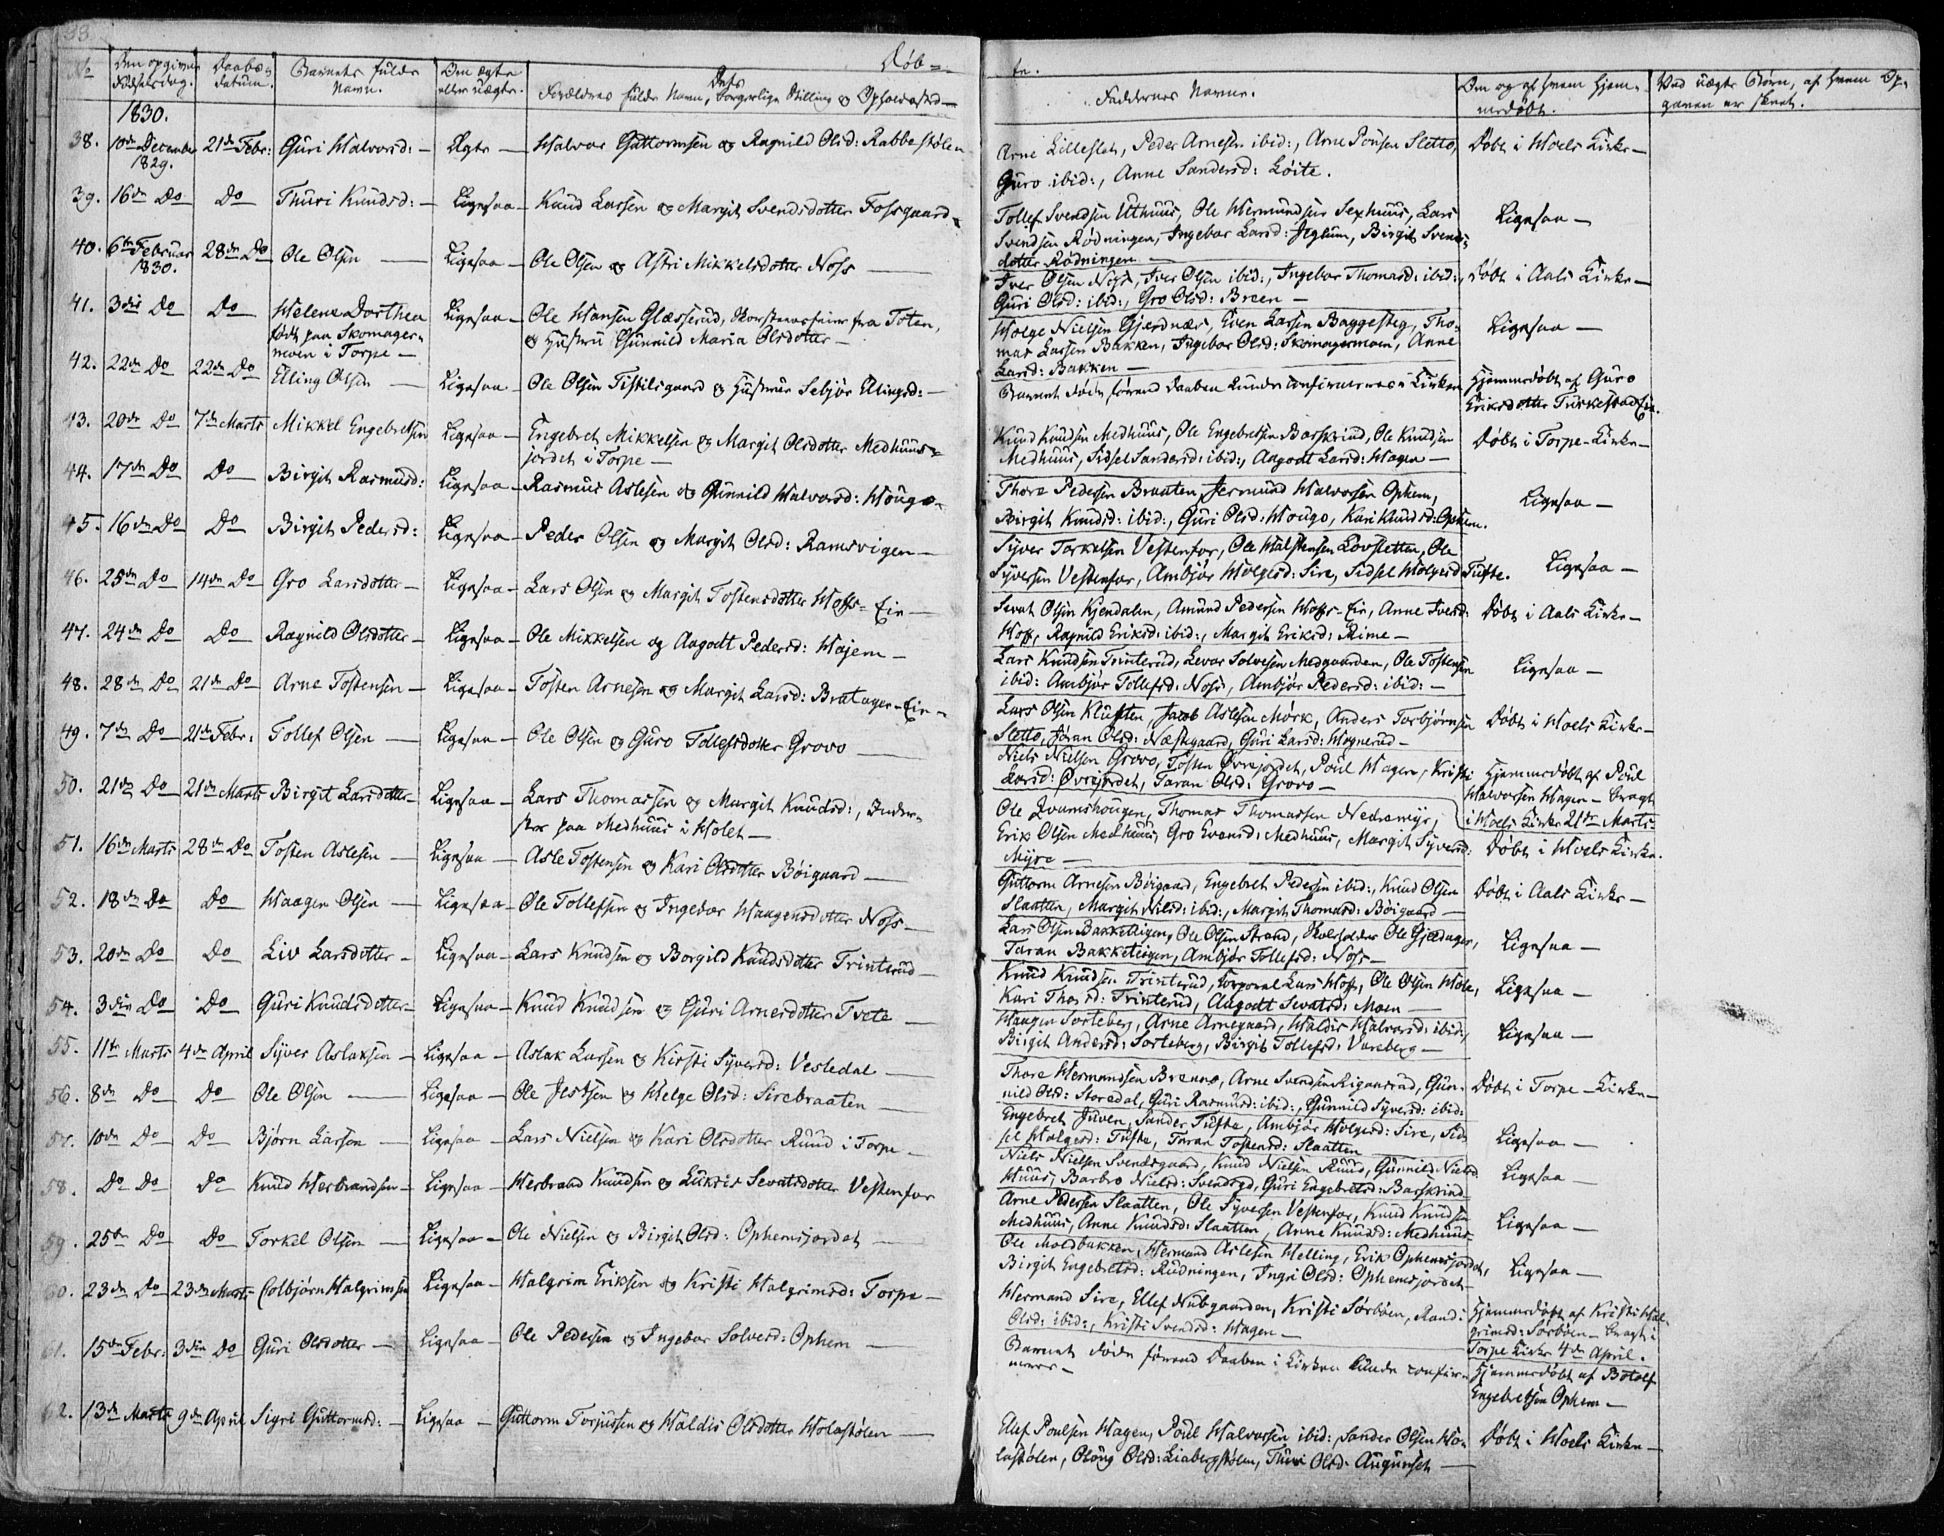 Døb=
te.
No
Den opgivne Fødselsdag.
Daabs-datum.
Barnets fulde Navn.
Om ægte eller uægte.
Forældres fulde Navn, Dets borgerlige Stilling og Opholdssted
Faddernes Navne.
Om og af hvem hjem=medøbt.
Ved uægte Børn, af hvem Op=gaven er skeet.
1830.
38. 10de December 1829. 21de Febr: Guri Halvorsd: — Ægte — Halvor Guttormsen og Ragnild Olsd: Rabbestølen
Arne Lilleslet, Peder Arnesen ibid:, Arne Pousen Sletto,
Guro ibid:, Anne Sandersd: Løite.
Døbt i Hoels Kirke —
39. 16de Do Do Thuri Knudsd: — Ligesaa — Knud Larsen og Margit Svendsdotter Fossgaard
Tollef Svendsen Uthuus, Ole Hermundsen Sexhuus, Lars
Svendsen Rødningen, Ingebor Larsd: Jeglum, Birgit Svends=
dotter Rødningen —
Ligesaa —
40. 6te Februar 1830. 28de Do Ole Olsen — Ligesaa — Ole Olsen og Astri Mikkelsdotter Noss —
Iver Olsen Noss, Iver Olsen ibid:, Ingebor Thomasd: ibid:,
Guri Olsd: ibid:, Gro Olsd: Breen —
Døbt i Aals Kirke —
41. 3die Do Do Helene Dorthea født paa Skomager=moen i Torpe — Ligesaa — Ole Hansen Glæsserud, Skorsteensfeier fra Toten,
og Hustru Gunnild Maria Olsdotter —
Helge Nielsen Gjerdnæs, Even Larsen Baggesteg, Tho=
mas Larsen Bakken, Ingebor Olsd: Skomagermoen, Anne
Larsd: Bakken —
Ligesaa —
42. 22de Do 22de Do Elling Olsen — Ligesaa — Ole Olsen Tistilgaard og Hustrue Sebjør Ellingsd: —
Barnet døde, førend Daaben kunde confirmeres i Kirken
Hjemmedøbt af Guro
Eriksdotter Turkestad Eie.
43. 20de Do 7de Marts Mikkel Engebretsen Ligesaa — Engebret Mikkelsen og Margit Olsdotter Medhuus=
jordet i Torpe —
Knud Knudsen Medhuus, Ole Engebretsen Barskrind, Ole Knudsen
Medhuus, Sidsel Sandersd: ibid:, Aagodt Larsd: Hagen —
Døbt i Torpe-Kirke —
44. 17de Do Do Birgit Rasmusd: Ligesaa — Rasmus Aslesen og Gunnild Halvorsd: Hougo —
Thore Pedersen Braaten, Jermund Halvorsen Ophem,
Birgit Knudsd: ibid:, Guri Olsd: Hougo, Kari Knudsd: Ophem.
Ligesaa —
45. 16de Do Do Birgit Pedersd: Ligesaa — Peder Olsen og Margit Olsd: Ramsvigen —
Syver Torkelsen Vestenfor, Ole Halstensen Lovsletten, Ole
Syversen Vestenfor, Ambjør Holgersd: Sire, Sidsel Holgersd: Tufte.
Ligesaa —
46. 25de Do 14de Do Gro Larsdotter — Ligesaa — Lars Olsen og Margit Tostensdotter Hoffs-Eie —
Sevat Olsen Kjendalen, Amund Pedersen Hoffs-Eie, Anne Iversd:
Hoff, Ragnild Eriksd: ibid:, Margit Eriksd: Rime —
Døbt i Aals Kirke —
47. 24de Do Do Ragnild Olsdotter — Ligesaa — Ole Mikkelsen og Aagodt Pedersd: Hajem —
Lars Knudsen Trinterud, Levor Solvesen Medgaarden, Ole Tostensen
ibid: Ambjør Tollefsd: Noss, Ambjør Pedersd: ibid: —
Ligesaa —
48. 28de Do 21de Do Arne Tostensen — Ligesaa — Tosten Arnesen og Margit Larsd: Bratager-Eie —
Lars Olsen Kluften, Jacob Aslesen Mørk, Anders Torbjørnsen
Sletto, Jøran Olsd: Næstgaard, Guri Larsd: Hognerud —
Døbt i Hoels Kirke —
49. 7de Do 21de Febr: Tollef Olsen — Ligesaa — Ole Olsen og Guro Tollefsdotter Grovo —
Niels Nielsen Grovo, Tosten Øvrejordet, Poul Hagen, Kristi
Larsd: Øvrejordet, Taran Olsd: Grovo —
Hjemmedøbt af Poul
Halvorsen Hagen — bragt
i Hoels Kirke 21de Marts
50. 21de Do 21de Marts Birgit Larsdotter — Ligesaa — Lars Thomassen og Margit Knudsd:, Inder=
ster paa Medhuus i Holet —
Ole Qvamshougen, Thomas Thomassen Nedremyr,
Erik Olsen Medhuus, Gro Evensd: Medhuus, Margit Syversd:
Myre —
Døbt i Hoels Kirke.
51. 16de Marts 28de Do Tosten Aslesen — Ligesaa — Asle Tostensen og Kari Olsdotter Bøigaard —
Guttorm Arnesen Bøigaard, Engebret Pedersen ibid:, Knud Olsen
Slaatten, Margit Nilsd: ibid:, Margit Thomasd: Bøigaard —
Døbt i Aals Kirke —
52. 18de Do Do Haagen Olsen — Ligesaa — Ole Tollefsen og Ingebor Haagensdotter Noss —
Lars Olsen Bakketeigen, Ole Olsen Strand, Skoleholder Ole Gjeldager,
Taran Bakketeigen, Ambjør Tollefsd: Noss —
Ligesaa —
53. 20de Do Do Liv Larsdotter — Ligesaa — Lars Knudsen og Borgild Knudsdotter Trinterud —
Knud Knudsen Trinterud, Corporal Lars Hoff, Ole Olsen Hole,
Kari Thorsd: Trinterud, Aagodt Sevatsd: Moen —
Ligesaa —
54. 3die Do Do Guri Knudsdotter — Ligesaa — Knud Knudsen og Guri Arnesdotter Tvete —
Haagen Sorteberg, Arne Arnegaard, Haldis Halvorsd: ibid:,
Birgit Andersd: Sorteberg, Birgit Tollefsd: Vareberg —
Ligesaa —
55. 11te Marts 4de April Syver Aslaksen — Ligesaa — Aslak Larsen og Kirsti Syversd: Vesledal —
Thore Hermandsen Brenno, Arne Svendsen Rigaansrud, Gun=
nild Olsd: Storedal, Guri Rasmusd: ibid:, Gunnild Syversd: ibid:
Døbt i Torpe-Kirke —
56. 8de Do Do Ole Olsen — Ligesaa — Ole Jestsen og Helge Olsd: Sirebraaten —
Engebret Juven, Sander Tufte, Ambjør Holgersd: Sire, Sid=
sel Holgersd: Tufte, Taran Tostensd: Slaatten
Ligesaa —
57. 10de Do Do Bjørn Larsen — Ligesaa — Lars Nielsen og Kari Olsdotter Ruud i Torpe —
Niels Nielsen Svendsgaard, Knud Nielsen Ruud, Gunnild Nielsd:
Huus, Barbro Nielsd: Svendsgd, Guri Engebretsd: Barskrind
Ligesaa —
58. Do Do Do Knud Herbrandsen — Ligesaa — Herbrand Knudsen og Lukris Sevatsdotter Vestenfor
Arne Pedersen Slaatten, Ole Syversen Vestenfor, Knud Knudsen
Medhuus, Anne Knudsd: Slaatten, Anne Knudsd: Medhuus
Ligesaa —
59. 25de Do Do Torkel Olsen — Ligesaa — Ole Nielsen og Birgit Olsd: Ophemsjordet —
Ole Moldbakken, Hermand Aslesen Helling, Erik Ophemsjordet,
Birgit Engebretsd: Rudningen, Ingri Olsd: Ophemsjordet —
Ligesaa —
60. 23de Do 23de Marts Colbjørn Halgrimsen Ligesaa — Halgrim Eriksen og Kristi Halgrimsd: Torpe —
Hermand Sire, Ellef Nubgaarden, Kristi Sørbøen, Randi
Olsd: ibid:, Kristi Svendsd: Hagen —
Hjemmedøbt af Kristi Hal=
grimsd: Sørbøen — bragt i
Torpe Kirke 4de April.
61. 15de Febr: 3die Do Guri Olsdotter — Ligesaa — Ole Pedersen og Ingebor Solvesd: Ophem —
Barnet døde førend Daaben i Kirken kunde confir=
meres —
Hjemmedøbt af Botolf
Engebretsen Ophem —
62. 13de Marts 9de April Sigri Guttormsd: — Ligesaa — Guttorm Torjussen og Haldis Olsdotter Holastølen —
Ellef Poulsen Hagen, Poul Halvorsen ibid:, Sander Olsen Ho=
lastølen, Oloug Olsd: Liabergstølen, Thuri Olsd: Augunset —
Døbt i Hoels Kirke —